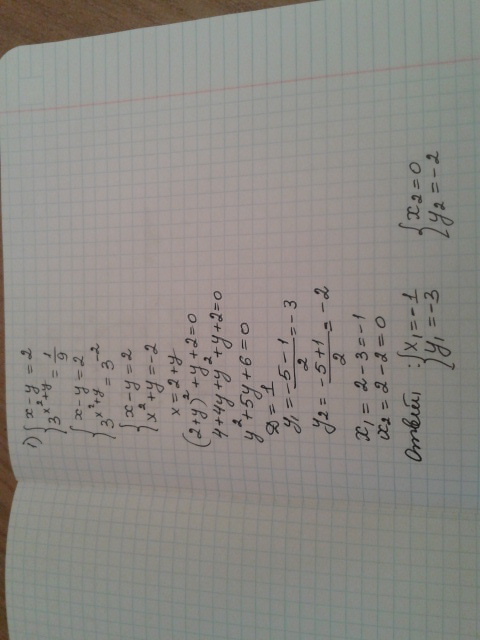 1) { x - y = 2
3^{x²+y} = 1/9
{ x - y = 2
3^{x²+y} = 3^{-2}
{ x - y = 2
x² + y = -2
x = 2 + y
(2 + y)² + y + 2 = 0
4 + 4y + y² + y + 2 = 0
y² + 5y + 6 = 0
D = 1
y₁ = (-5 - 1)/2 = -3
y₂ = (-5 + 1)/2 = -2
x₁ = 2 - 3 = -1
x₂ = 2 - 2 = 0
Ответ: { x₁ = -1 { x₂ = 0
y₁ = -3 y₂ = -2